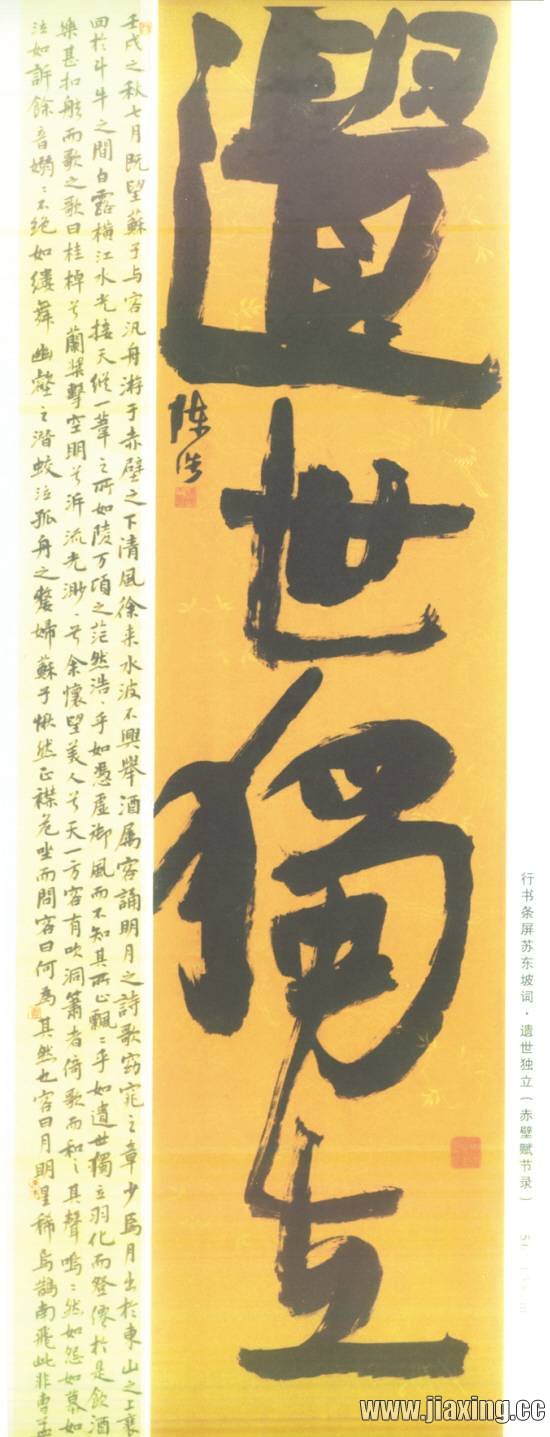 行书条屏苏东坡词·遗世独立（赤壁赋节录）
遺世獨立
陈浩
壬戌之秋七月既望蘇子与客汎舟游于赤壁之下清風徐来水波不興舉酒属客誦明月之詩歌窈窕之章少焉月出於東山之上裵
回於斗牛之間白露横江水光接天縱一葦之所如陵万頃之茫然浩〻乎如憑虚御風而不知其所止飄〻乎如遺世獨立羽化而登僊於是飲酒
樂甚扣舷而歌之歌曰桂棹兮蘭槳擊空明兮泝流光渺〻兮余懷望美人兮天一方客有吹洞簫者倚歌而和之其聲嗚〻然如怨如慕如
泣如訴餘音嫋〻不绝如缕舞幽壑之潜蛟泣孤舟之嫠婦蘇子愀然正襟危坐而問客曰何為其然也客曰月明星稀烏鵲南飛此非曹孟
www.jiaxing.cc